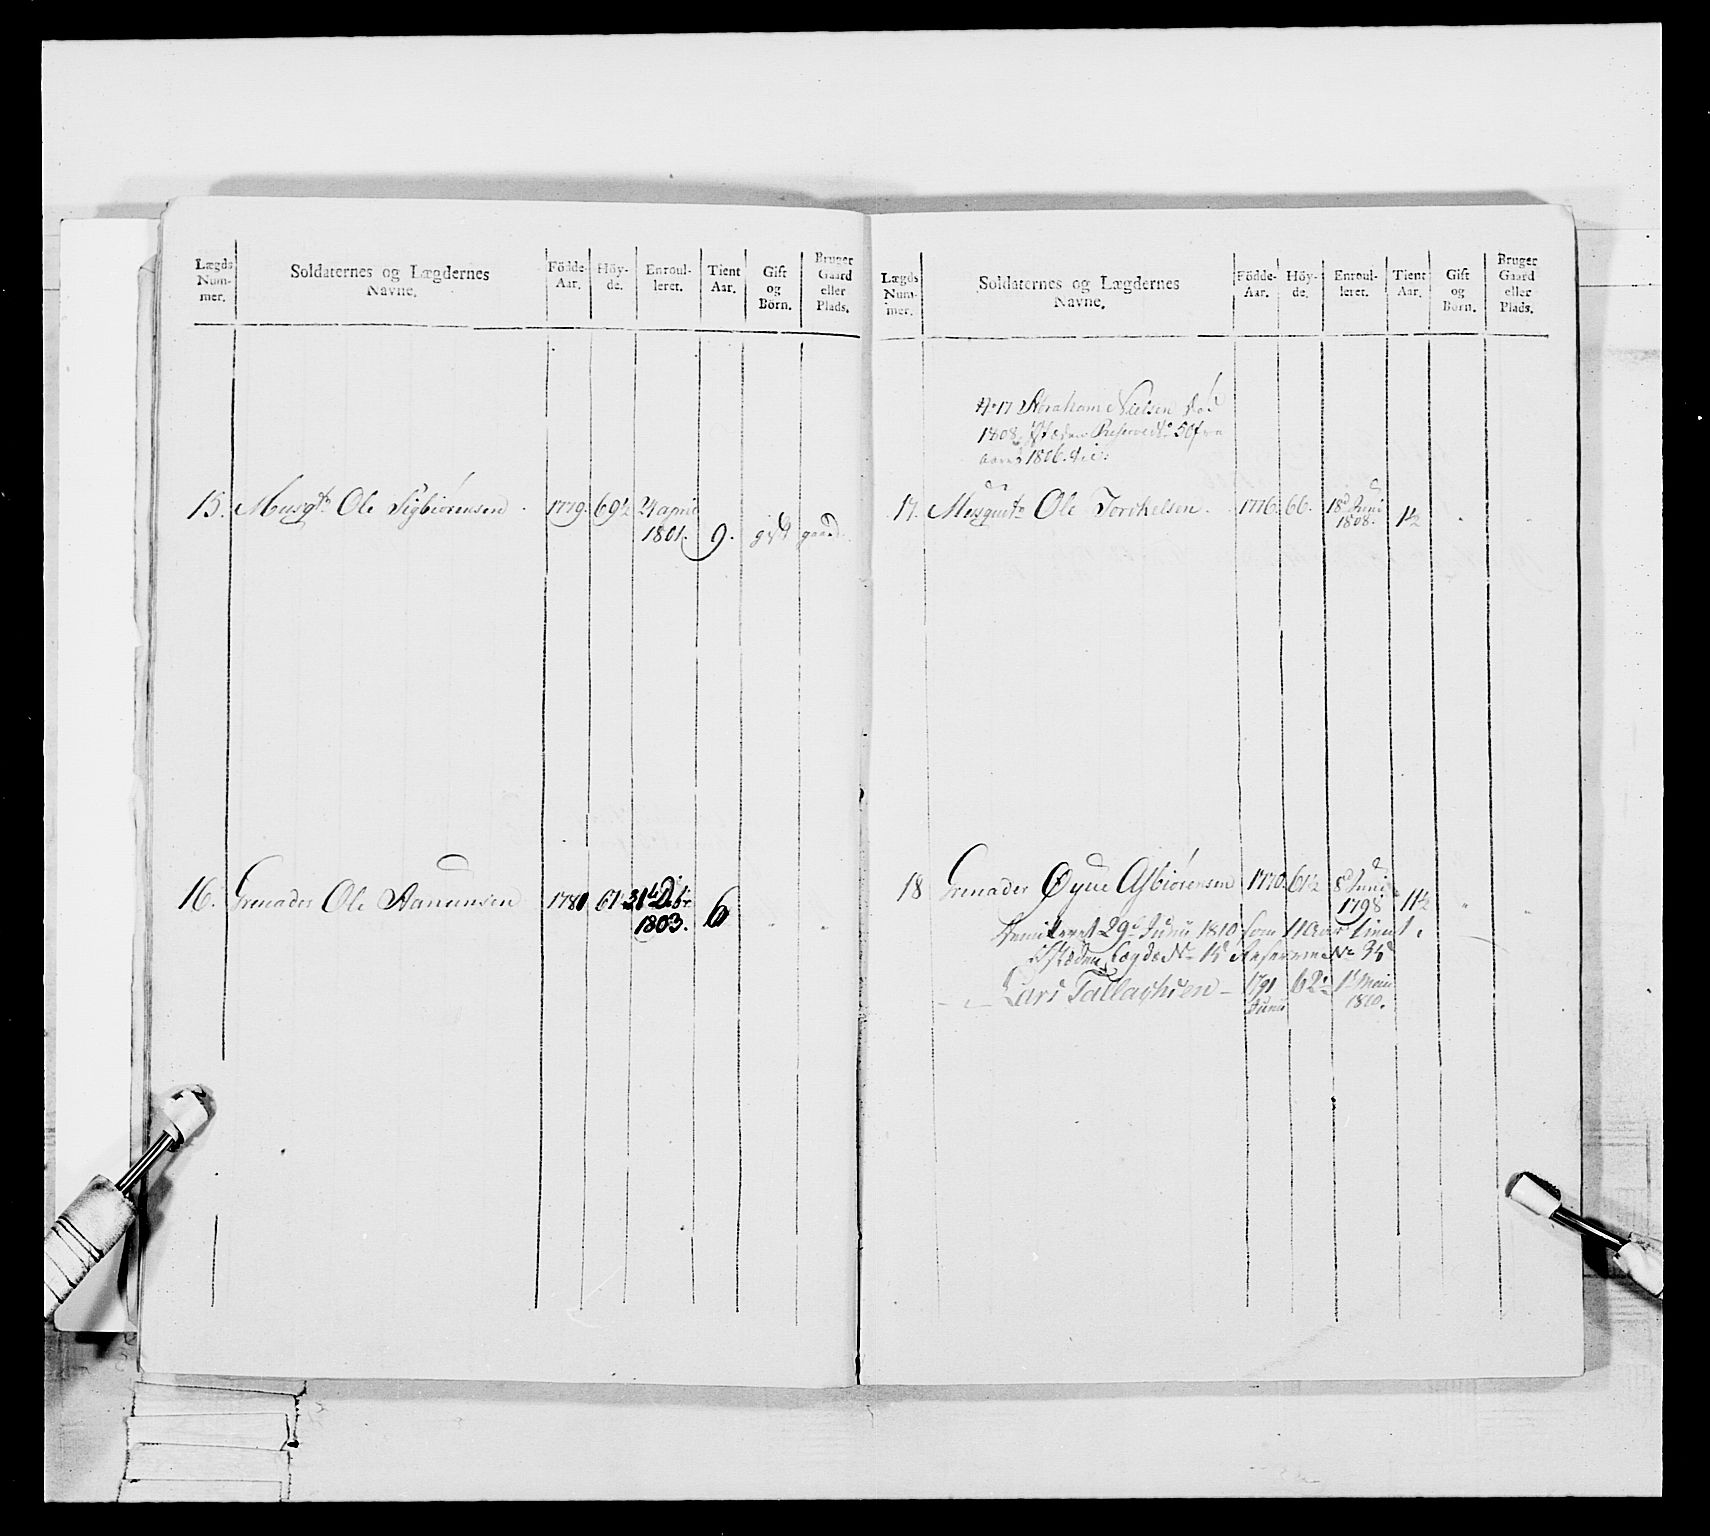 Lægds
Num-
mer.
Soldaternes og Lægdernes
Navne.
Födde-
Aar.
Höy-
de.
Enroul-
leret.
Tient
Aar.
Gift
og
Börn.
Bruger
Gaard
eller
Plads.
15. Musqt Ole Sigbiörensen 1779. 69½ 24 april
1801. 9. gift gaard
16. Grenader Ole Aanunsen 1780 61 31t Debr
1803. 6 " "
Lægds
Num-
mer.
Soldaternes og Lægdernes
Navne.
Födde-
Aar.
Höy-
de.
Enroul-
leret.
Tient
Aar.
Gift
og
Börn.
Bruger
Gaard
eller
Plads.
No 17 Abraham Nielsen död
1808, isteden Reserved No 50 fra
1806.
17. Musquetr Ole Torkelsen. 1776. 66. 18d Juni
1808. 1½
18 Grenader Öyne Asbiörensen 1770. 61½ 8d Juni
1798 11½ " "
Demiteret 29d Junii 1810 som 11 aar tient,
isteden Lægds No 15 Reserven No 35
Lars Tallachsen 1791 62½ 1t Maii
Junii 1810.